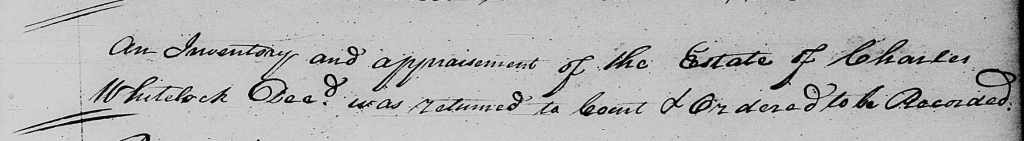 An Inventory and appraisement of the Estate of Charles
Whitelock Dec.d was returned to Court & Ordered to be Recorded.